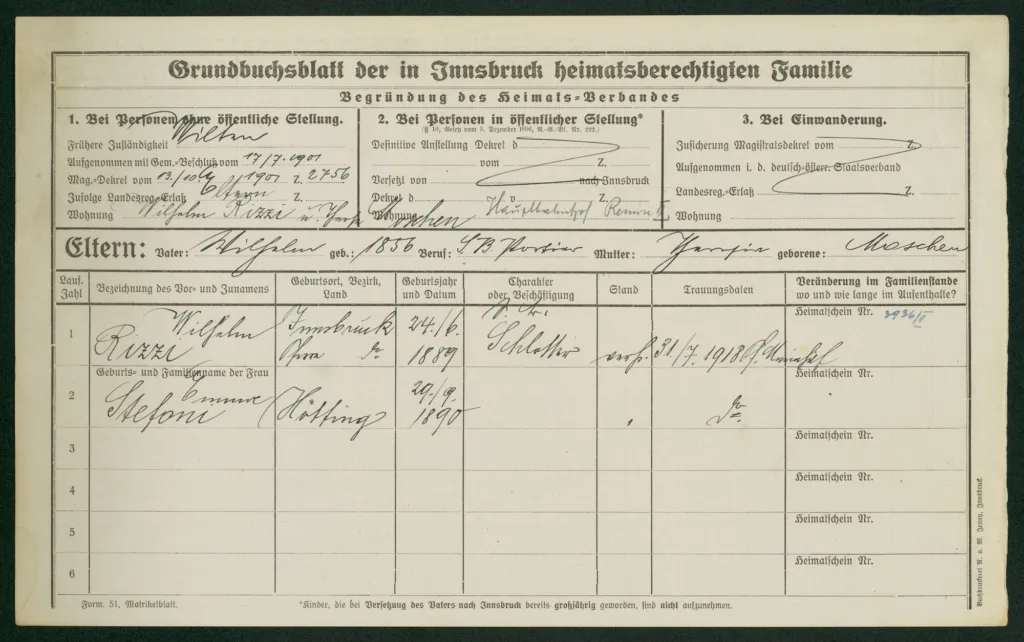 Grundbuchsblatt der in Innsbruck heimatsberechtigten Familie
Begründung des Heimats=Verbandes
1. Bei Personen ohne öffentliche Stellung.
Frühere Zuständigkeit Wilten
Aufgenommen mit Gem.=Beschluß vom 17/7. 1901
Mag.=Dekret vom 13/10. 1901 Z. 2756
Zufolge Landesreg.=Erlaß Z.
Eltern
Wohnung Wilhelm Rizzi u. Moschen
2. Bei Personen in öffentlicher Stellung*
(§ 10, Gesetz vom 5. Dezember 1896, R.=G.=Bl. Nr. 222.)
Definitive Anstellung Dekret d
vom Z.
Versetzt von nach Innsbruck
Dekret d v Z.
Wohnung Hauptbahnhof
3. Bei Einwanderung.
Zusicherung Magistratsdekret vom Z.
Aufgenommen i. d. deutsch=österr. Staatsverband
Landesreg.=Erlaß Z.
Wohnung
Eltern: Vater: Wilhelm geb.: 1856 Beruf: S. B. Portier Mutter: Theresia geborene: Moschen
Lauf. Zahl
Bezeichnung des Vor= und Zunamens
Geburtsort, Bezirk, Land
Geburtsjahr und Datum
Charakter oder Beschäftigung
Stand
Trauungsdaten
Veränderung im Familienstande
wo und wie lange im Aufenthalte?
1
Wilhelm
Rizzi
Innsbruck
do
24./6.
1889
Schlosser
verh.
31./7. 1918
Heimatschein Nr. 3936/II
2
Geburts= und Familienname der Frau
Emma
Stefani
Hötting
29./9.
1890
"
do
Heimatschein Nr.
3
Heimatschein Nr.
4
Heimatschein Nr.
5
Heimatschein Nr.
6
Heimatschein Nr.
Form. 51, Matrikelblatt.
*Kinder, die bei Versetzung des Vaters nach Innsbruck bereits großjährig geworden, sind nicht aufzunehmen.
Buchdruckerei R. u. M. Jenny, Innsbruck.